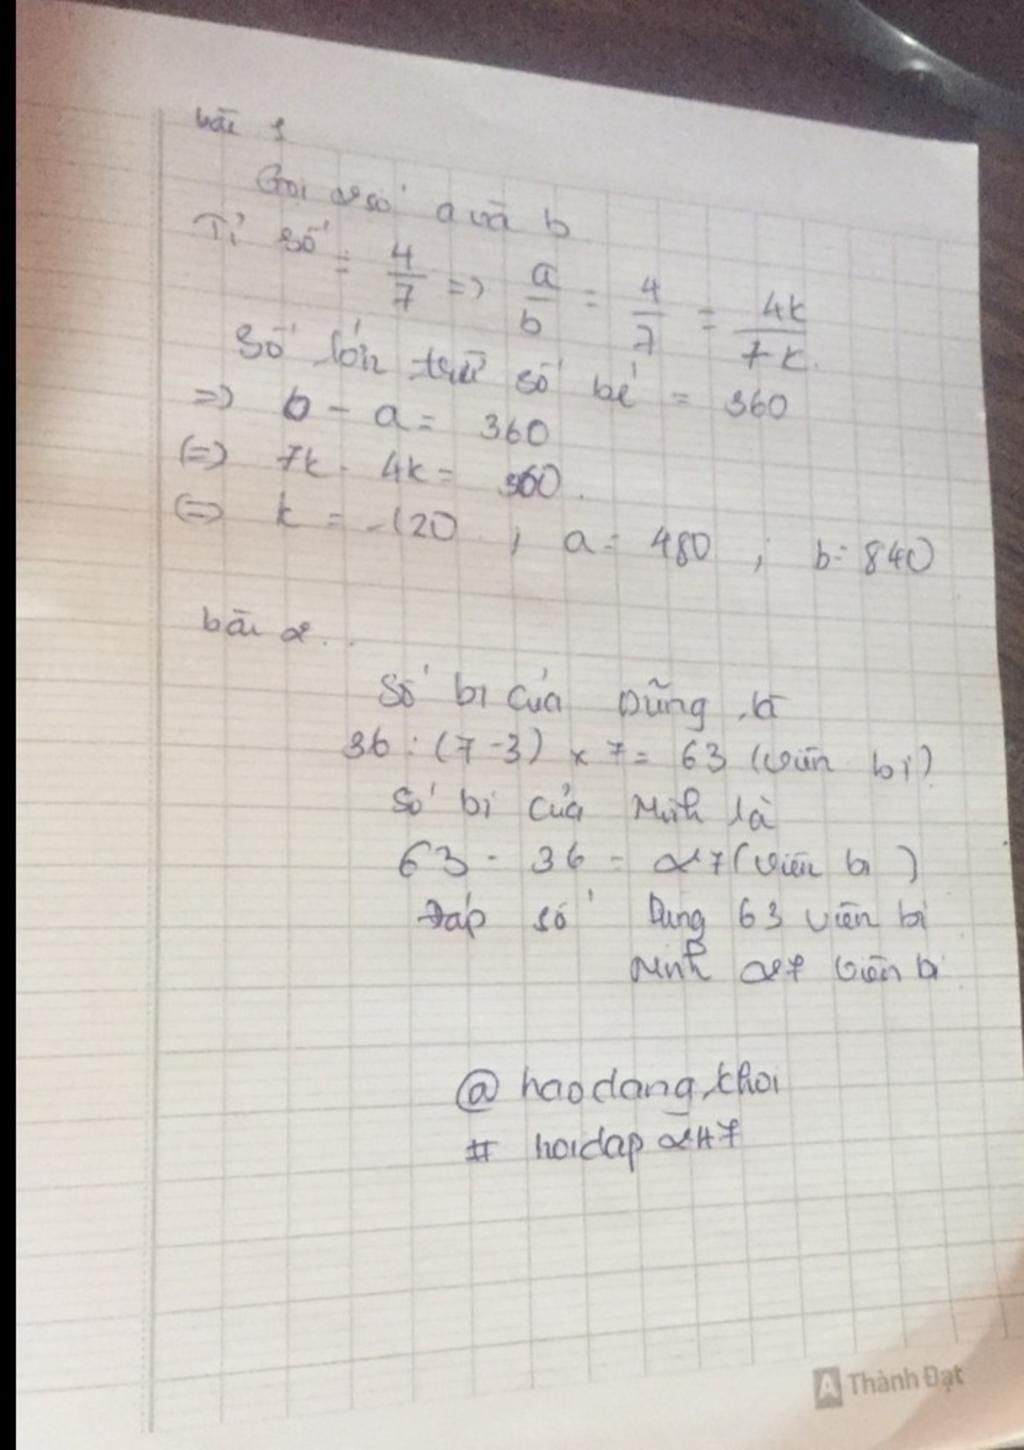 bài 1
Gọi 2 số a và b
Tỉ số = 4/7 => a/b = 4/7 = 4k/7k.
Số lớn trừ số bé = 360
=> b - a = 360
(=) 7k - 4k = 360.
(=) k = 120 ; a = 480 ; b = 840
bài 2..
Số bi của Dũng là
36 : (7-3) x 7 = 63 (viên bi)
Số bi của Minh là
63 - 36 = 27 (viên bi)
Đáp số Dũng 63 viên bi
Minh 27 viên bi
@ haodangkhoi
# hoidap247
Thành Đạt